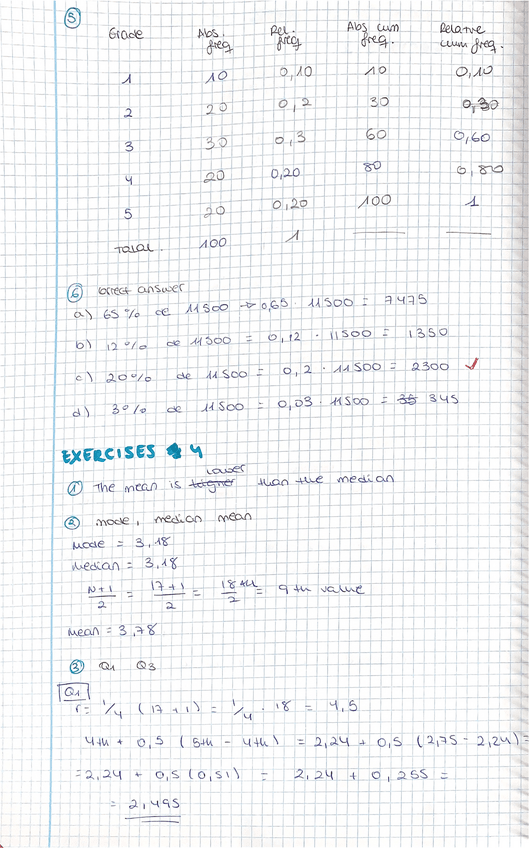 5
Grade Abs freq Rel. freq Abs cum freq. Relative cum freq.
1 10 0,10 10 0,10
2 20 0,2 30 0,30
3 30 0,3 60 0,60
4 20 0,20 80 0,80
5 20 0,20 100 1
Total. 100 1
6 correct answer
a) 65% de 11500 → 0,65 · 11500 = 7475
b) 12% de 11500 = 0,12 · 11500 = 1350
c) 20% de 11500 = 0,2 · 11500 = 2300 ✓
d) 3% de 11500 = 0,03 · 11500 = 35 345
EXERCISES 4
lower
1 The mean is higher than the median
2 mode, median mean
Mode = 3,18
Median = 3,18
N+1/2 = 17+1/2 = 18th/2 = 9th value
Mean = 3,78
3 Q1 Q3
Q1
r = 1/4 (17+1) = 1/4 · 18 = 4,5
4th + 0,5 (5th - 4th) = 2,24 + 0,5 (2,75 - 2,24) =
= 2,24 + 0,5 (0,51) = 2,24 + 0,255 =
= 2,495